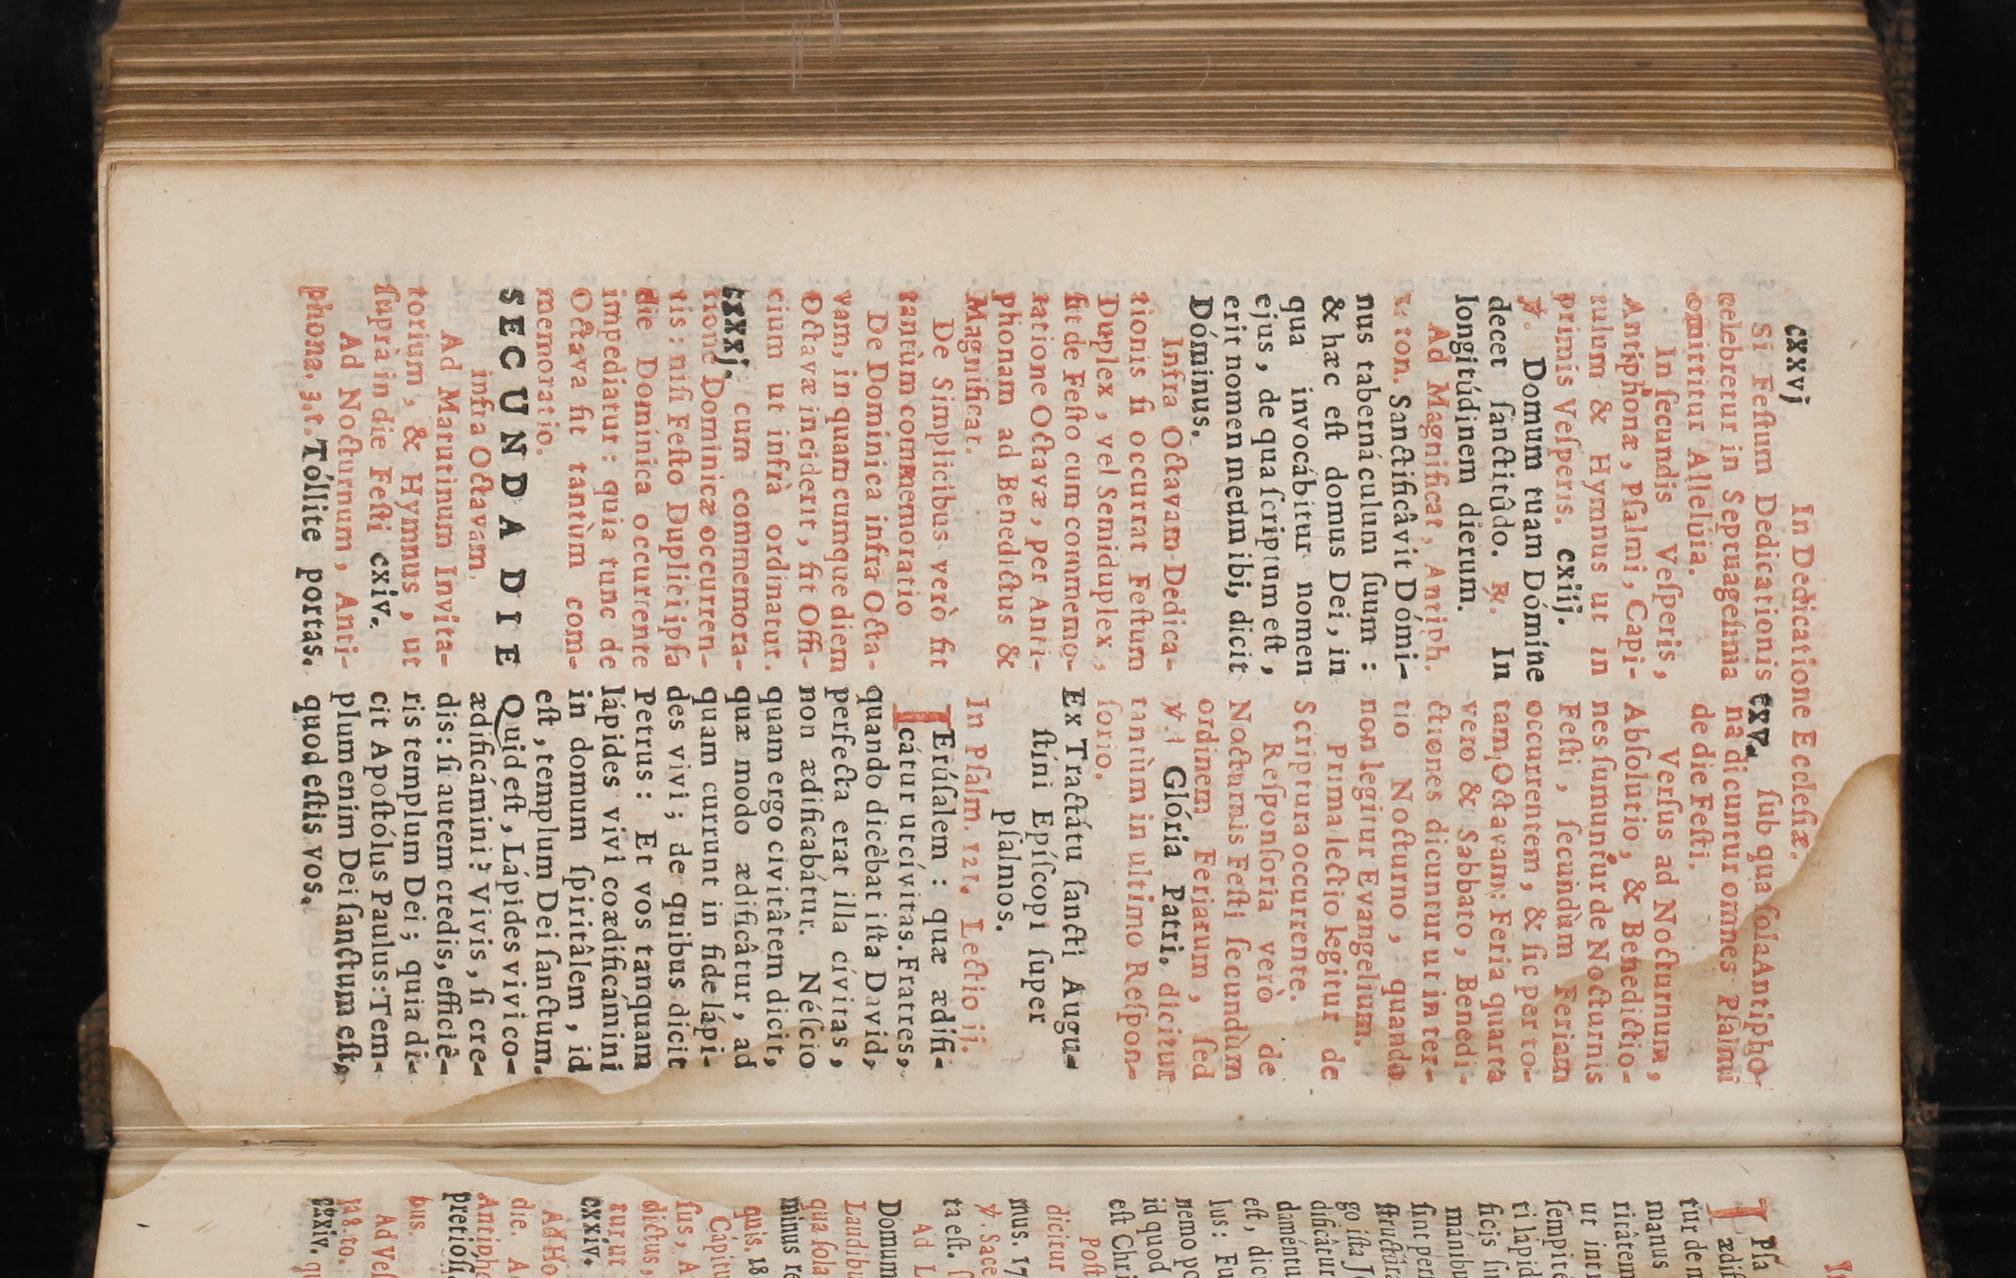 cxxvj
In Dedicatione Ecclesiæ.
Si Feſtum Dedicationis
celebretur in Septuageſima
omittitur Alleluia.
In ſecundis Veſperis,
Antiphonæ, Pſalmi, Capi-
tulum & Hymnus ut in
primis Veſperis. cxiij.
℣. Domum tuam Dómine
decet ſanctitûdo. ℟. In
longitúdinem diêrum.
Ad Magnificat, Antiph.
ton. Sanctificâvit Dómi-
nus tabernáculum ſuum :
& hæc eſt domus Dei, in
qua invocábitur nomen
ejus, de qua ſcriptum eſt,
erit nomen meum ibi, dicit
Dóminus.
Infra Octavam Dedica-
tionis ſi occurrat Feſtum
Duplex, vel Semiduplex,
fit de Feſto cum commemo-
ratione Octavæ, per Anti-
phonam ad Benedictus &
Magnificat.
De Simplicibus verò fit
tantùm commemoratio
De Dominica infra Octa-
vam, in quamcumque diem
Octavæ inciderit, fit Offi-
cium ut infrà ordinatur.
cxxxj. cum commemora-
tione Dominicæ occurren-
tis : niſi Feſto Duplici ipſa
die Dominica occurrente
impediatur : quia tunc de
Octava fit tantùm com-
memoratio.
SECUNDA DIE
infra Octavam.
Ad Matutinum Invita-
torium, & Hymnus, ut
ſuprà in die Feſti cxiv.
Ad Nocturnum, Anti-
phona. 3.t. Tóllite portas.
cxv. ſub qua ſola Antipho-
na dicuntur omnes Pſalmi
de die Feſti.
Verſus ad Nocturnum,
Abſolutio, & Benedictio-
nes ſumuntur de Nocturnis
Feſti, ſecundùm Feriam
occurrentem, & ſic per to-
tam Octavam: Feria quarta
verò & Sabbato, Benedi-
ctiones dicuntur ut in ter-
tio Nocturno, quando
non legitur Evangelium.
Prima lectio legitur de
Scriptura occurrente.
Reſponſoria verò de
Nocturnis Feſti ſecundùm
ordinem Feriarum, ſed
tantùm in ultimo Reſpon-
ſorio.
℣. Glória Patri. dicitur
Ex Tractátu ſancti Augu-
ſtíni Epíſcopi ſuper
pſalmos.
In Pſalm. 121. Lectio ij.
IErúſalem : quæ ædifi-
cátur ut cívitas. Fratres,
quando dicêbat iſta David,
perfecta erat illa cívitas,
non ædificabátur. Néſcio
quam ergo civitâtem dicit,
quæ modo ædificâtur, ad
quam currunt in fide lápi-
des vivi; de quibus dicit
Petrus : Et vos tanquam
lápides vivi coædificamini
in domum ſpiritâlem, id
eſt, templum Dei ſanctum.
Quid eſt, Lápides vivi co-
ædificámini? Vivis, ſi cre-
dis: ſi autem credis, efficiê-
ris templum Dei; quia di-
cit Apoſtólus Paulus: Tem-
plum enim Dei ſanctum eſt,
quod eſtis vos.
Pſa
tur de
manus
ritâtem
ut int
ſempite
ti lápid
ficis
mánibu
ſint per
ſtructúra
go iſta
dificâtur
daméntu
eſt, dic
lus : Fu
nemo po
id quod
eſt Chri
Poſt
dicitur
mus. 17
℣. Sace
ta eſt.
Ad L
Domum
Laudibu
qua ſola
minus re
quis. 18
Capitu
ſus, A
dictus,
tur ut
cxxiv.
Ad Ho
die. A
Antipho
pretióſ
bus.
Ad Veſ
to.
cxxiv. qu